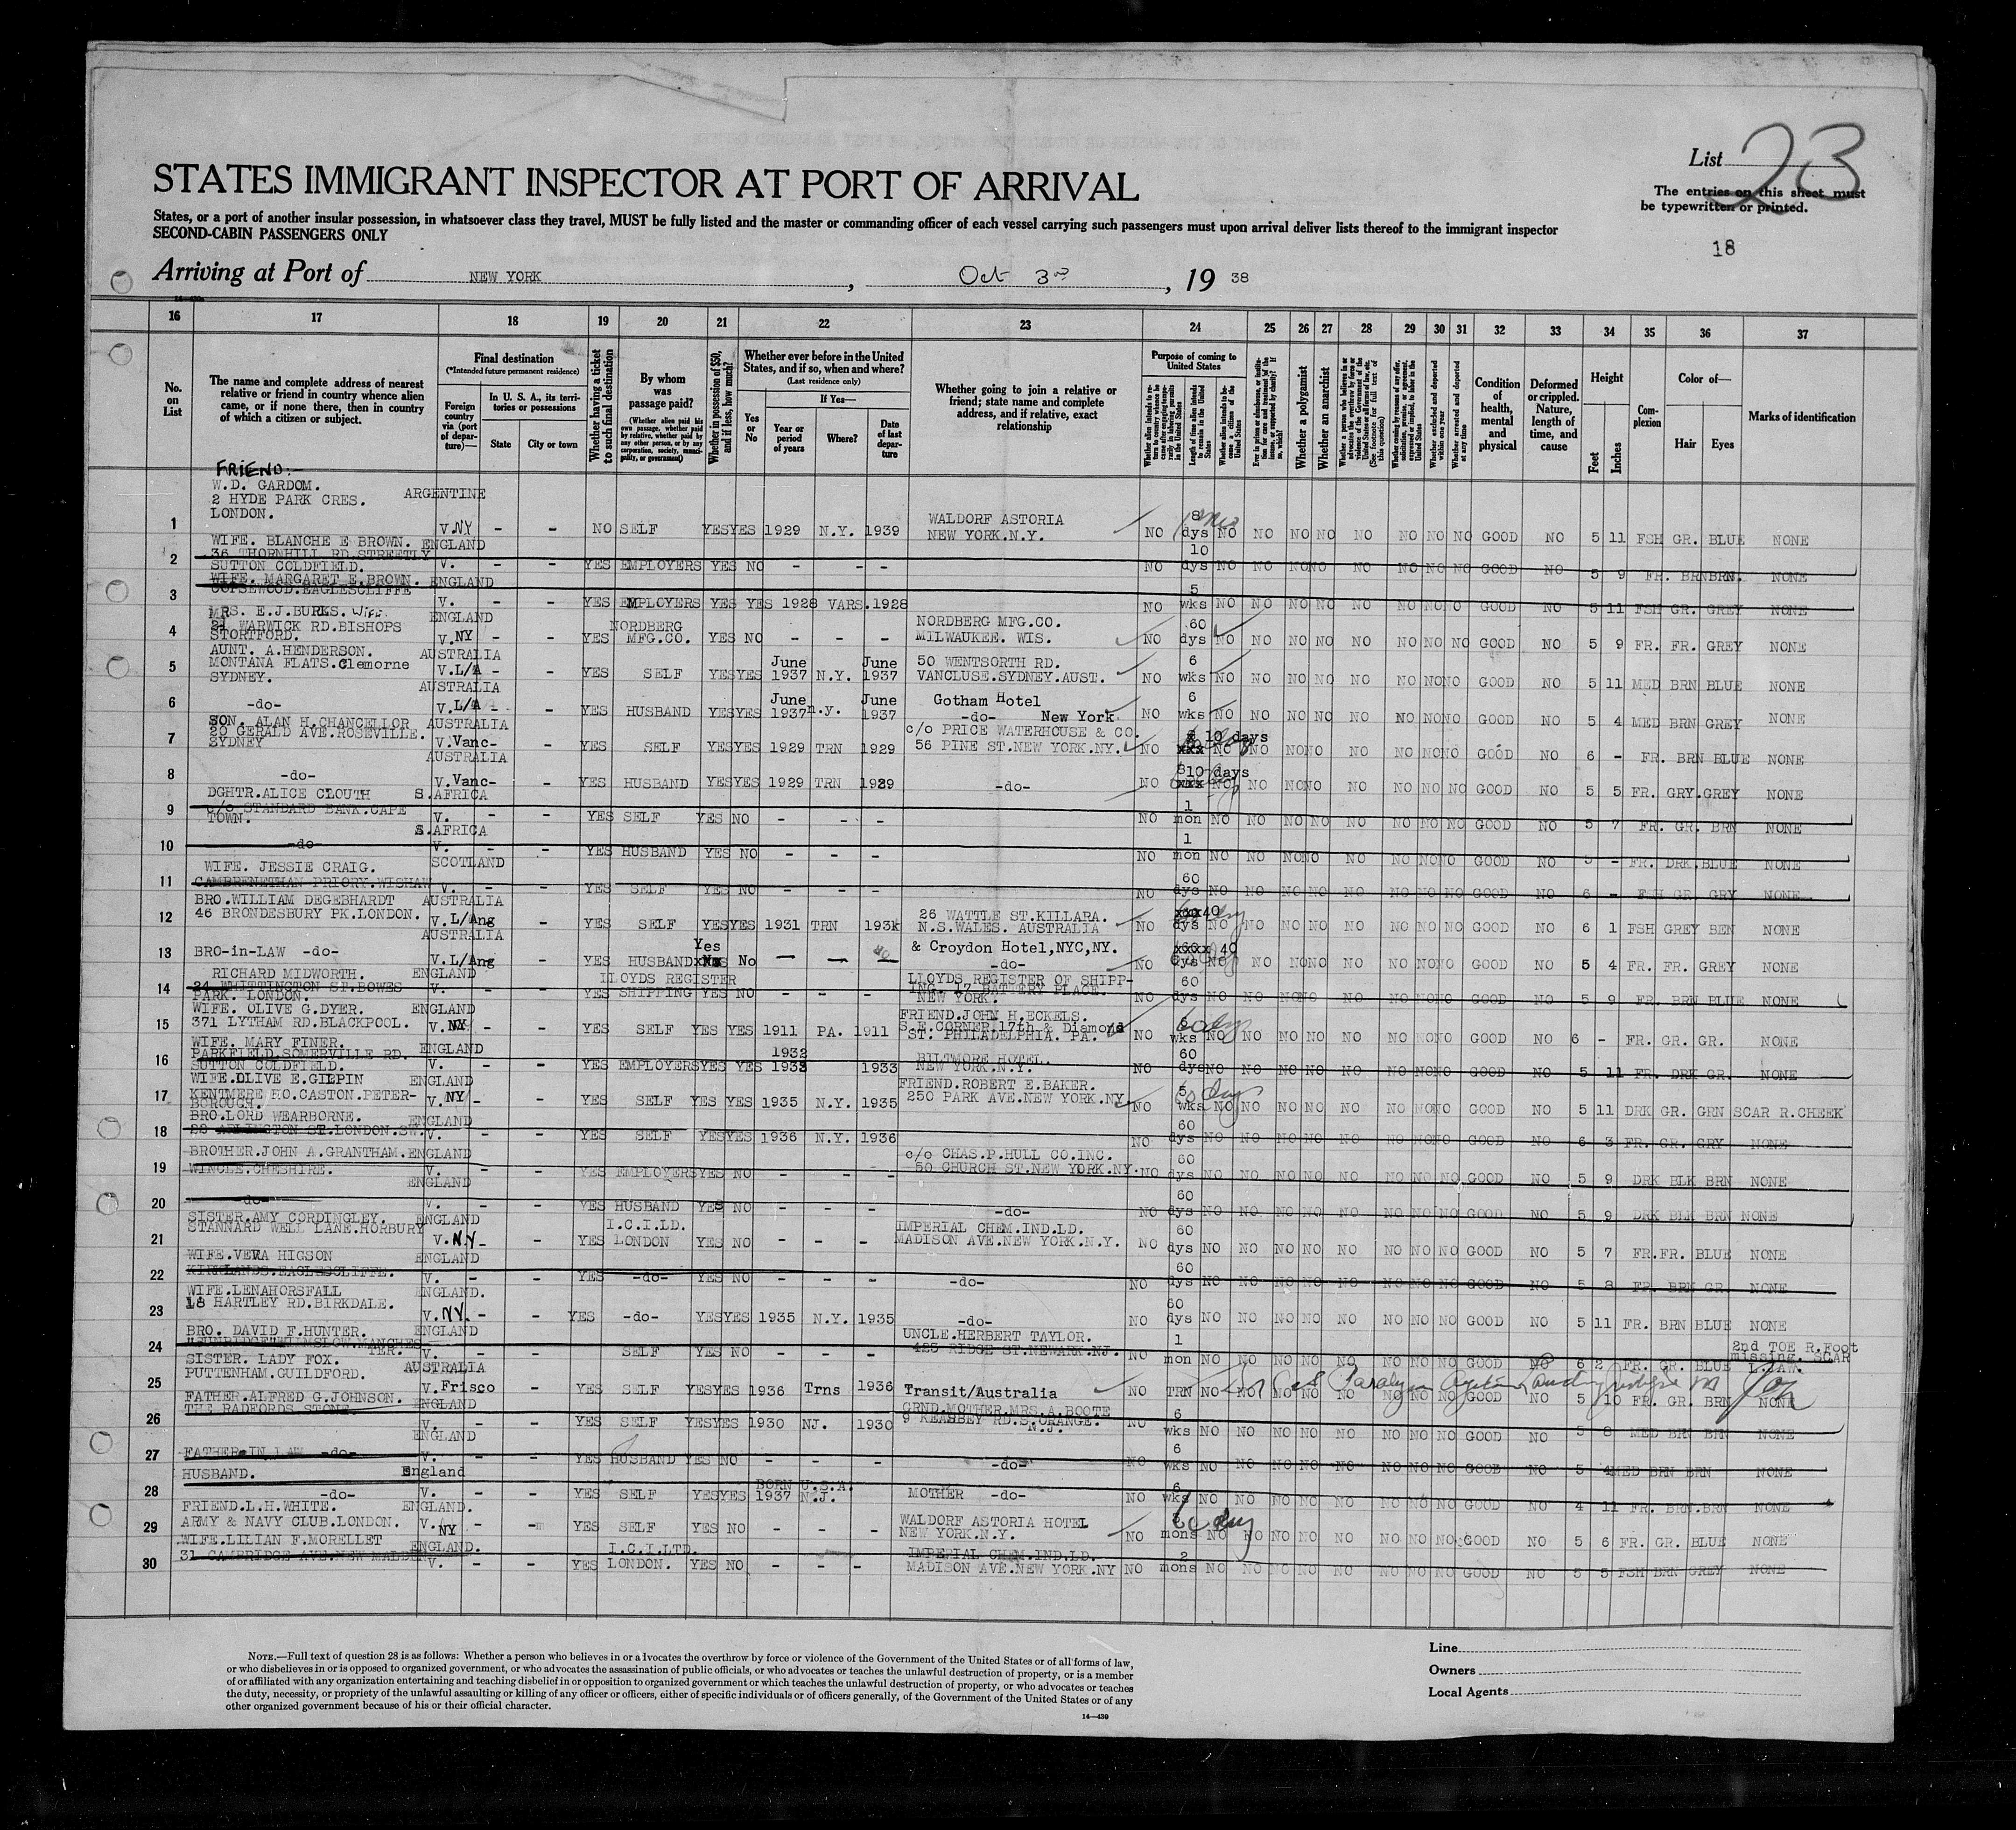 List 23
STATES IMMIGRANT INSPECTOR AT PORT OF ARRIVAL
The entries on this sheet must
be typewritten or printed.
States, or a port of another insular possession, in whatsoever class they travel, MUST be fully listed and the master or commanding officer of each vessel carrying such passengers must upon arrival deliver lists thereof to the immigrant inspector
SECOND-CABIN PASSENGERS ONLY
18
Arriving at Port of NEW YORK, Oct 3rd, 19 38
16 17 18 19 20 21 22 23 24 25 26 27 28 29 30 31 32 33 34 35 36 37
No. on List
The name and complete address of nearest relative or friend in country whence alien came, or if none there, then in country of which a citizen or subject.
Final destination
(*Intended future permanent residence)
Foreign country via (port of departure)—
In U. S. A., its territories or possessions
State
City or town
Whether having a ticket to such final destination
By whom was passage paid?
(Whether alien paid his own passage, whether paid by relative, whether paid by any other person, or by any corporation, society, municipality, or government)
Whether in possession of $50, and if less, how much?
Whether ever before in the United States, and if so, when and where?
(Last residence only)
Yes or No
If Yes—
Year or period of years
Where?
Date of last departure
Whether going to join a relative or friend; state name and complete address, and if relative, exact relationship
Purpose of coming to United States
Length of time alien intends to remain in the United States
Whether a polygamist
Whether an anarchist
Condition of health, mental and physical
Deformed or crippled. Nature, length of time, and cause
Height
Feet
Inches
Complexion
Color of—
Hair
Eyes
Marks of identification
FRIEND:-
W.D. GARDOM.
2 HYDE PARK CRES. ARGENTINE
LONDON.
1 V.NY - - NO SELF YES YES 1929 N.Y. 1939 WALDORF ASTORIA NEW YORK.N.Y. NO 8 dys NO NO NO NO NO NO NO NO GOOD NO 5 11 FSH GR. BLUE NONE
WIFE. BLANCHE E BROWN. ENGLAND
36 THORNHILL RD.STREETLY
2 SUTTON COLDFIELD. V. - - YES EMPLOYERS YES NO - - - NO 10 dys NO NO NO NO NO NO NO NO GOOD NO 5 9 FR. BRN BRN. NONE
WIFE. MARGARET E.BROWN. ENGLAND
3 COPSEWOOD.EAGLESCLIFFE V. - - YES EMPLOYERS YES YES 1928 VARS. 1928 NO 5 wks NO NO NO NO NO NO NO NO GOOD NO 5 11 FSH GR. GREY NONE
MRS. E.J.BURKS. Wife ENGLAND
24 WARWICK RD.BISHOPS
4 STORTFORD. V.NY - - YES NORDBERG MFG.CO. YES NO - - - NORDBERG MFG.CO. MILWAUKEE. WIS. NO 60 dys NO NO NO NO NO NO NO NO GOOD NO 5 9 FR. FR. GREY NONE
AUNT. A.HENDERSON. AUSTRALIA
MONTANA FLATS.Clemorne
5 SYDNEY. V.L/A - - YES SELF YES YES June 1937 N.Y. June 1937 50 WENTSORTH RD. VANCLUSE.SYDNEY.AUST. NO 6 wks NO NO NO NO NO NO NO NO GOOD NO 5 11 MED BRN BLUE NONE
AUSTRALIA
6 -do- V.L/A - - YES HUSBAND YES YES June 1937 n.y. June 1937 Gotham Hotel -do- New York NO 6 wks NO NO NO NO NO NO NO NO GOOD NO 5 4 MED BRN GREY NONE
SON. ALAN H.CHANCELLOR AUSTRALIA
20 GERALD AVE.ROSEVILLE.
7 SYDNEY V.Vanc- - YES SELF YES YES 1929 TRN 1929 c/o PRICE WATERHOUSE & CO. 56 PINE ST.NEW YORK.NY. NO 10 days xxx NO NO NO NO NO NO NO NO GOOD NO 6 - FR. BRN BLUE NONE
AUSTRALIA
8 -do- V.Vanc- - YES HUSBAND YES YES 1929 TRN 1929 -do- NO 10 days xxx NO NO NO NO NO NO NO NO GOOD NO 5 5 FR. GRY.GREY NONE
DGHTR.ALICE CLOUTH S.AFRICA
c/o STANDARD BANK.CAPE
9 TOWN. V. - - YES SELF YES NO - - - NO 1 mon NO NO NO NO NO NO NO NO GOOD NO 5 7 FR. GR. BRN NONE
S.AFRICA
10 -do- V. - - YES HUSBAND YES NO - - - NO 1 mon NO NO NO NO NO NO NO NO GOOD NO 5 - FR. DRK.BLUE NONE
WIFE. JESSIE CRAIG. SCOTLAND
11 CAMBRENETHAN PRIORY.WISHAW V. - - YES SELF YES NO - - - NO 60 dys NO NO NO NO NO NO NO NO GOOD NO 6 - FSH GR. GRY NONE
BRO.WILLIAM DEGEBHARDT AUSTRALIA
12 46 BRONDESBURY PK.LONDON. V.L/Ang - YES SELF YES YES 1931 TRN 1931 26 WATTLE ST.KILLARA. N.S.WALES. AUSTRALIA NO xxx 40 dys NO NO NO NO NO NO NO NO GOOD NO 6 1 FSH GREY BEN NONE
AUSTRALIA
13 BRO-in-LAW -do- V.L/Ang - YES HUSBAND Yes No - - - & Croydon Hotel,NYC,NY. -do- NO xxxx 40 dys NO NO NO NO NO NO NO NO GOOD NO 5 4 FR. FR. GREY NONE
RICHARD MIDWORTH. ENGLAND
24 WHITTINGTON ST.BOWES
14 PARK. LONDON. V. - - YES LLOYDS REGISTER SHIPPING YES NO - - - LLOYDS REGISTER OF SHIPPING. 17 BATTERY PLACE. NEW YORK. NO 60 dys NO NO NO NO NO NO NO NO GOOD NO 5 9 FR. BRN BLUE NONE
WIFE. OLIVE G.DYER. ENGLAND
15 371 LYTHAM RD.BLACKPOOL. V.NY - - YES SELF YES YES 1911 PA. 1911 FRIEND.JOHN H.ECKELS. S.E.CORNER.17th & Diamond ST. PHILADELPHIA. PA. NO wks NO NO NO NO NO NO NO NO GOOD NO 6 - FR. GR. GR. NONE
WIFE. MARY FINER. ENGLAND
PARKFIELD.SOMERVILLE RD.
16 SUTTON COLDFIELD. V. - - YES EMPLOYERS YES YES 1932 1933 1933 BILTMORE HOTEL. NEW YORK.N.Y. NO 60 dys NO NO NO NO NO NO NO NO GOOD NO 5 11 FR. DRK GR. NONE
WIFE.OLIVE E.GILPIN ENGLAND
KENTMERE HO.CASTON.PETER-
17 BOROUGH. V. NY - - YES SELF YES YES 1935 N.Y. 1935 FRIEND.ROBERT E.BAKER. 250 PARK AVE.NEW YORK.NY NO 5 wks NO NO NO NO NO NO NO NO GOOD NO 5 11 DRK GR. GRN SCAR R.CHEEK
BRO.LORD WEARBORNE. ENGLAND
18 28 ARLINGTON ST.LONDON.SW. V. - - YES SELF YES YES 1936 N.Y. 1936 NO 60 dys NO NO NO NO NO NO NO NO GOOD NO 6 3 FR. GR. GRY NONE
BROTHER.JOHN A.GRANTHAM. ENGLAND
19 WINCLE.CHESHIRE. V. - - YES EMPLOYERS YES NO - - - c/o CHAS.P.HULL CO.INC. 50 CHURCH ST.NEW YORK.NY. NO 60 dys NO NO NO NO NO NO NO NO GOOD NO 5 9 DRK BLK BRN NONE
ENGLAND
20 -do- V. - - YES HUSBAND YES NO - - - -do- NO 60 dys NO NO NO NO NO NO NO NO GOOD NO 5 9 DRK BLK BRN NONE
SISTER.AMY CORDINGLEY. ENGLAND
21 STANNARD WELL LANE.HORBURY V.N.Y. - - YES I.C.I.LD. LONDON YES NO - - - IMPERIAL CHEM.IND.LD. MADISON AVE.NEW YORK.N.Y. NO 60 dys NO NO NO NO NO NO NO NO GOOD NO 5 7 FR.FR. BLUE NONE
WIFE.VERA HIGSON ENGLAND
22 KIRKLANDS.EAGLESCLIFFE. V. - - YES -do- YES NO - - - -do- NO 60 dys NO NO NO NO NO NO NO NO GOOD NO 5 8 FR. BRN GR. NONE
WIFE.LENAHORSFALL ENGLAND.
23 18 HARTLEY RD.BIRKDALE. V.NY. - - YES -do- YES YES 1935 N.Y. 1935 -do- NO 60 dys NO NO NO NO NO NO NO NO GOOD NO 5 11 FR. BRN BLUE NONE
BRO. DAVID F.HUNTER. ENGLAND
24 "SUNRIDGE"WILMSLOW.MANCHESTER. V. - - SELF YES NO - - - UNCLE.HERBERT TAYLOR. RIDGE ST.NEWARK.NJ. NO 1 mon NO NO NO NO NO NO NO NO GOOD NO 6 2 FR. GR. BLUE 2nd TOE R.Foot missing. SCAR
SISTER. LADY FOX. AUSTRALIA
25 PUTTENHAM.GUILDFORD. V.Frisco - YES SELF YES YES 1936 Trns 1936 Transit/Australia NO TRN NO NO NO NO NO NO NO NO GOOD NO 5 10 FR. GR. BRN NONE
FATHER.ALFRED G.JOHNSON. ENGLAND
26 THE RADFORDS STONE. V. - - YES SELF YES YES 1930 NJ. 1930 GRND.MOTHER.MRS.A.BOOTE 9 KEASBEY RD.S.ORANGE. N.J. NO 6 wks NO NO NO NO NO NO NO NO GOOD NO 5 8 MED BRN BRN NONE
ENGLAND
27 FATHER-IN LAW -do- V. - - YES HUSBAND YES NO - - - -do- NO 6 wks NO NO NO NO NO NO NO NO GOOD NO 5 4 MED BRN BRN NONE
HUSBAND. England
28 -do- V. - - YES SELF YES YES BORN U.S.A. 1937 N.J. MOTHER -do- NO 6 wks NO NO NO NO NO NO NO NO GOOD NO 4 11 FR. BRN.BRN NONE
FRIEND.L.H.WHITE. ENGLAND.
29 ARMY & NAVY CLUB.LONDON. V. NY - YES SELF YES NO - - - WALDORF ASTORIA HOTEL NEW YORK.N.Y. NO mons NO NO NO NO NO NO NO NO GOOD NO 5 6 FR. GR. BLUE NONE
WIFE.LILIAN F.MORELLET ENGLAND.
30 31 CAMBRIDGE AVE.NEW MALDEN V. - - YES I.C.I.LTD. LONDON. YES NO - - - IMPERIAL CHEM.IND.LD. MADISON AVE.NEW YORK.NY NO 2 mons NO NO NO NO NO NO NO NO GOOD NO 5 5 FSH BRN GREY NONE
NOTE.—Full text of question 28 is as follows: Whether a person who believes in or advocates the overthrow by force or violence of the Government of the United States or of all forms of law,
or who disbelieves in or is opposed to organized government, or who advocates the assassination of public officials, or who advocates or teaches the unlawful destruction of property, or is a member
of or affiliated with any organization entertaining and teaching disbelief in or opposition to organized government or which teaches the unlawful destruction of property, or who advocates or teaches
the duty, necessity, or propriety of the unlawful assaulting or killing of any officer or officers, either of specific individuals or of officers generally, of the Government of the United States or of any
other organized government because of his or their official character.
14—430
Line
Owners
Local Agents